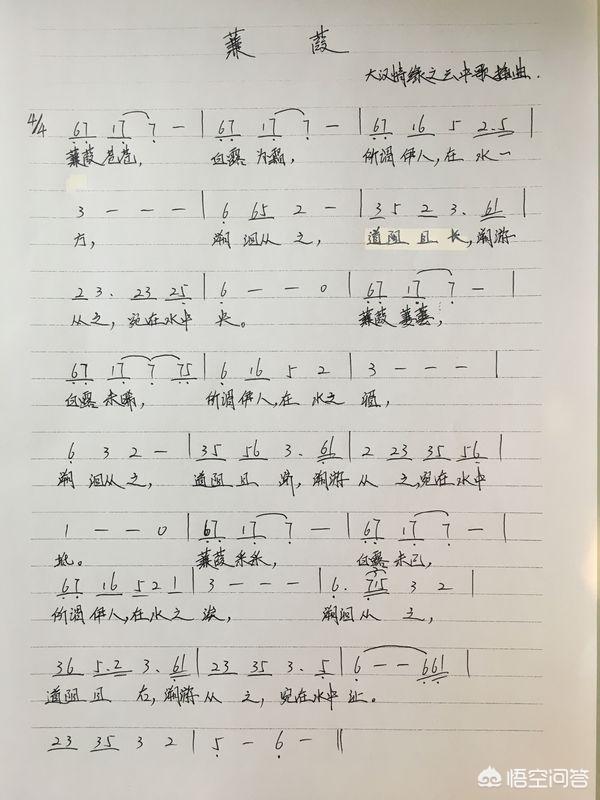 蒹 葭
大汉情缘之云中歌插曲.
4/4 67 17 7 - | 67 17 7 - | 67 16 5 2.5 |
蒹葭苍苍, 白露为霜, 所谓伊人,在 水一
3 - - - | 6 65 2 - | 35 2 3. 61 |
方, 溯洄从之, 道阻且长,溯游
23. 23 25 | 6 - - 0 | 67 17 7 - |
从之, 宛在水中 央。 蒹葭萋萋,
67 17 7 75 | 6 16 5 2 | 3 - - - |
白露未晞, 所谓伊人,在 水之 湄,
6 3 2 - | 35 56 3. 61 | 2 23 35 56 |
溯 洄从之, 道阻且 跻,溯游 从 之,宛在水中
1 - - 0 | 67 17 7 - | 67 17 7 - |
坻。 蒹葭采采, 白露未已,
67 16 521 | 3 - - - | 6. 715 3 2 |
所谓伊人,在水之 涘, 溯洄从 之,
36 5.2 3. 61 | 23 35 3. 5 | 6 - - 661 |
道阻且 右,溯游 从 之, 宛在水中 沚。
23 35 3 2 | 5 - 6 - ‖
悟空问答